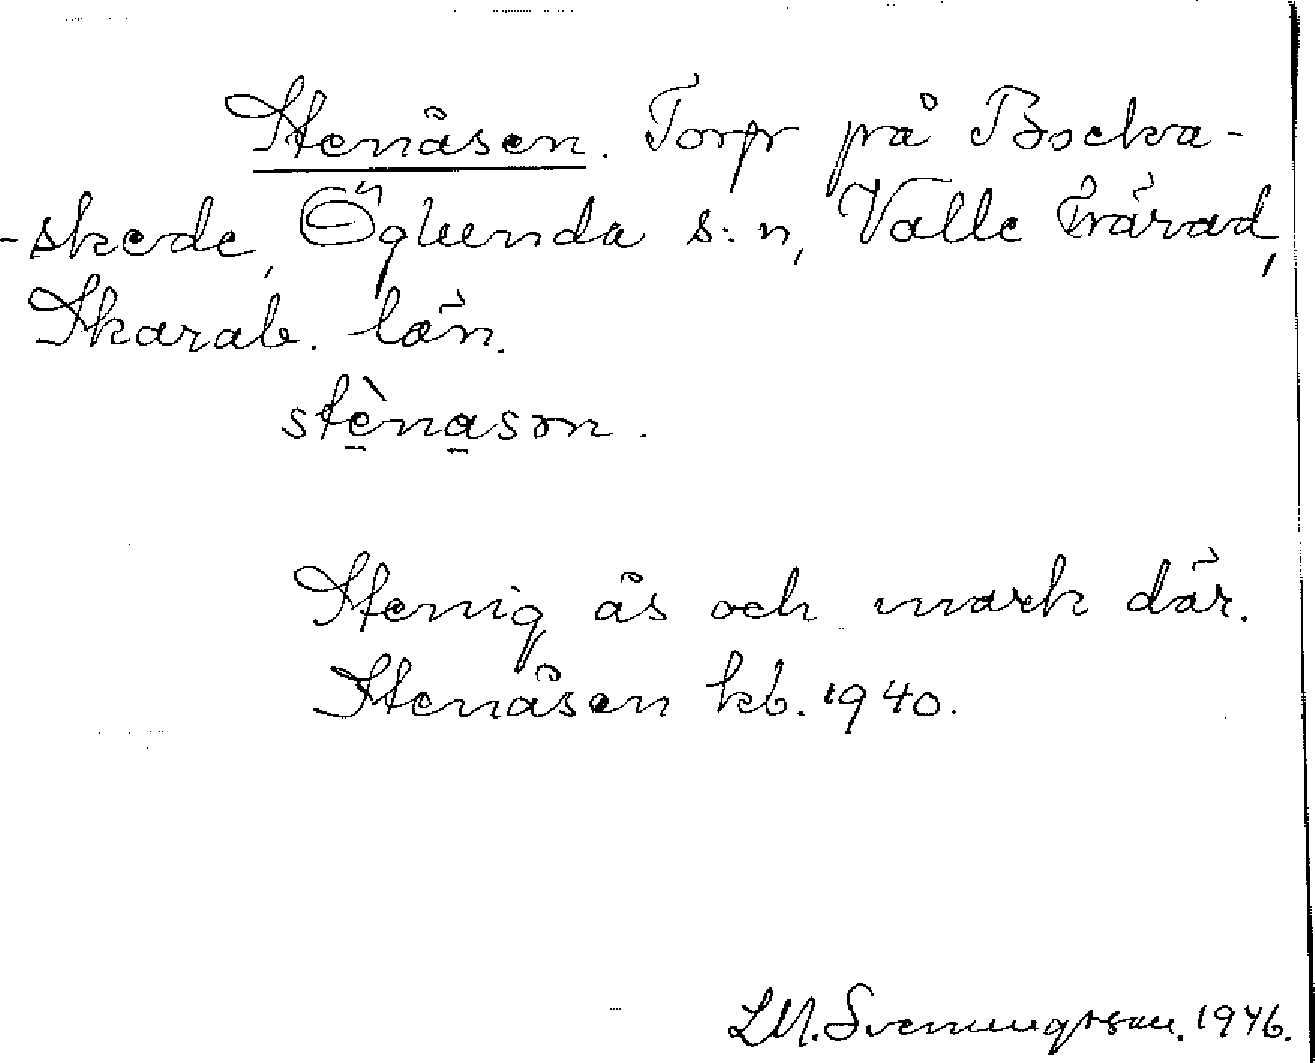 Stenåsen. Torp på Bocka-
-skede, Öglunda s:n, Valle härad,
Skarab. län.
stènason.
Stenig ås och mark där.
Stenåsen kb. 1940.
L.M. Svenungsson. 1946.